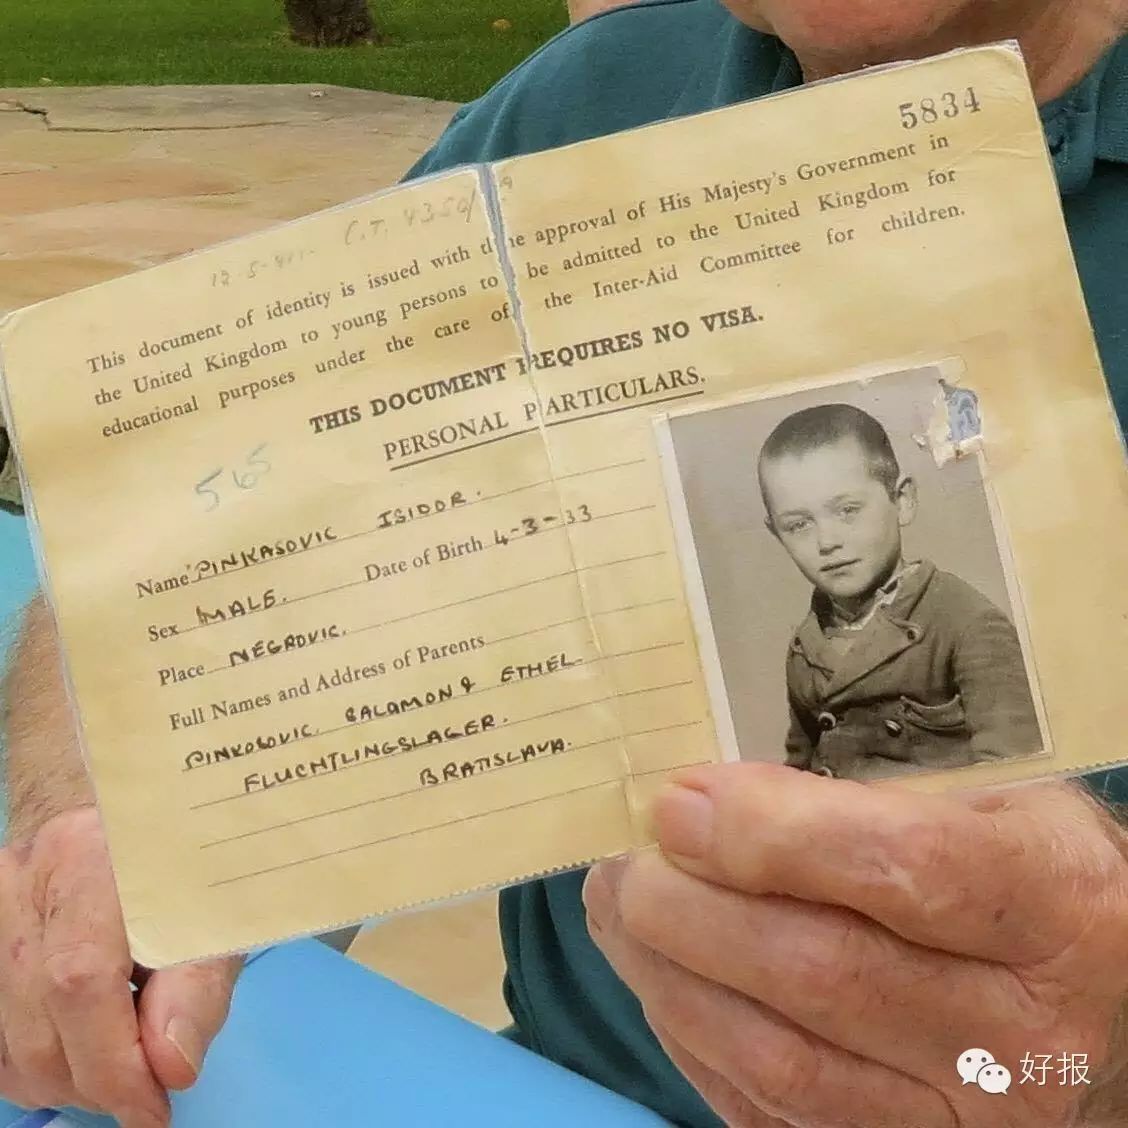 5834
C.T. 4350/
This document of identity is issued with the approval of His Majesty's Government in
the United Kingdom to young persons to be admitted to the United Kingdom for
educational purposes under the care of the Inter-Aid Committee for children.
THIS DOCUMENT REQUIRES NO VISA.
PERSONAL PARTICULARS.
565
Name PINKASOVIC ISIDOR.
Sex MALE. Date of Birth 4-3-33
Place NEGROVIC.
Full Names and Address of Parents
PINKOSOVIC SALAMON & ETHEL-
FLUCHTLINGSLAGER.
BRATISLAVA.
好报